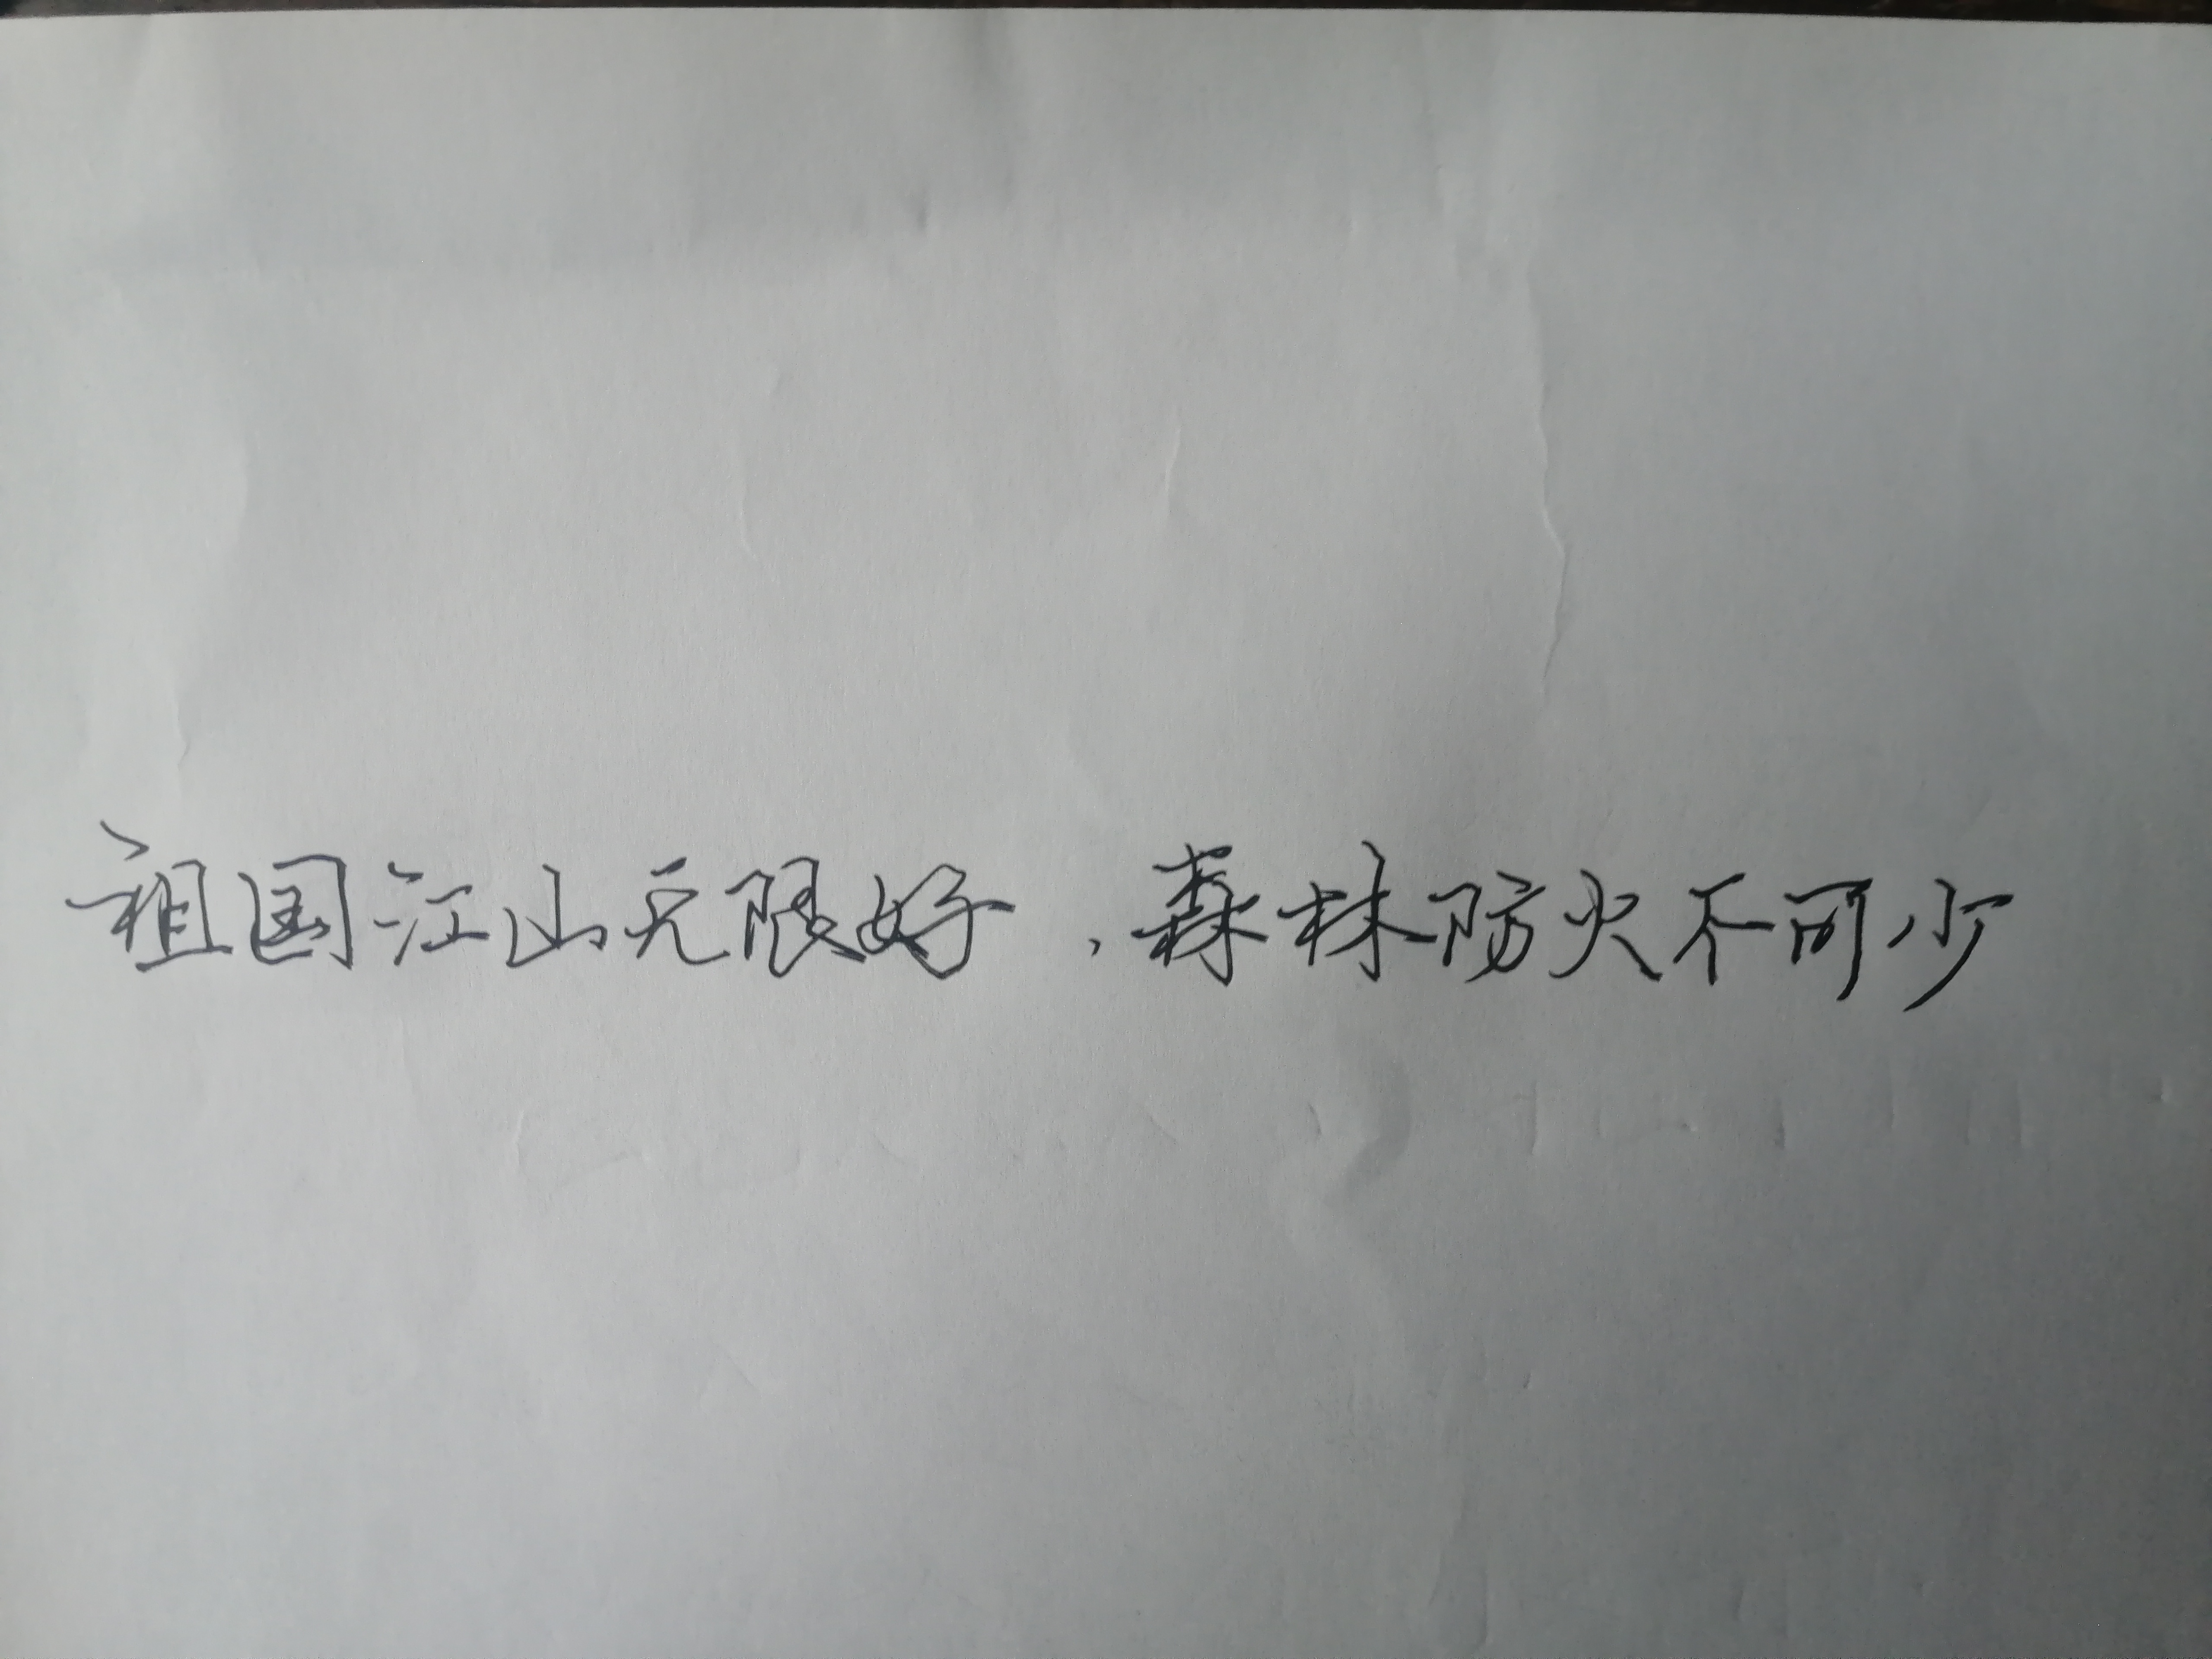 祖国江山无限好，森林防火不可少